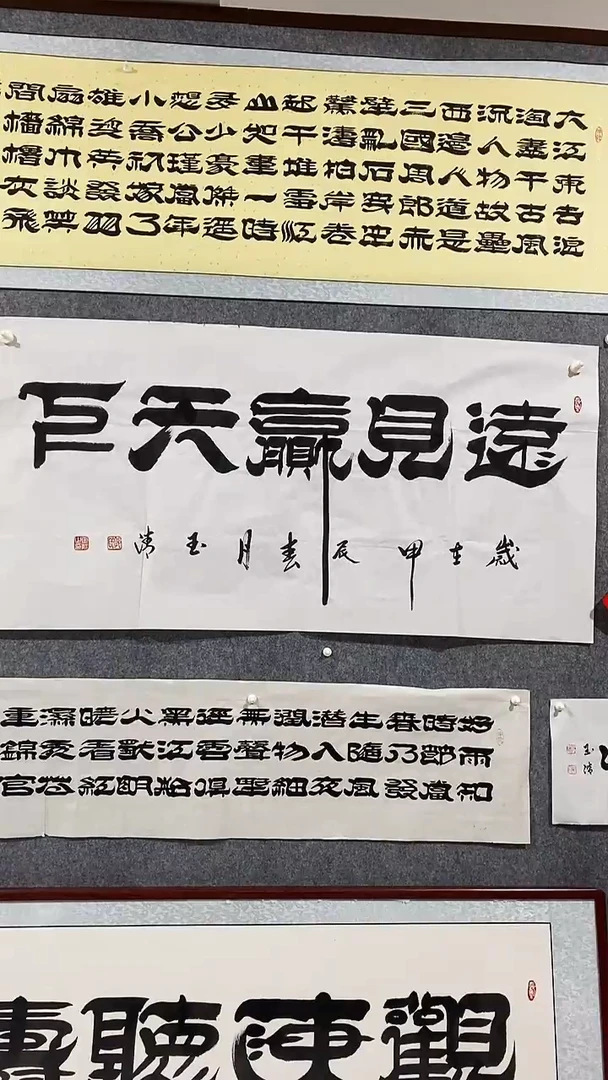 大江東去浪
淘盡千古風
流人物故壘
西邊人道是
三國周郎赤
壁亂石穿空
驚濤拍岸卷
起千堆雪江
山如畫一時
多少豪傑遥
想公瑾當年
小喬初嫁了
雄姿英發羽
扇綸巾談笑
間檣櫓灰飛
遠見贏天下
歲在甲辰春月玉清
好雨知
時節當
春乃發
生隨風
潛入夜
潤物細
無聲野
徑雲俱
黑江船
火獨明
曉看紅
濕處花
重錦官
玉清
觀海聽濤